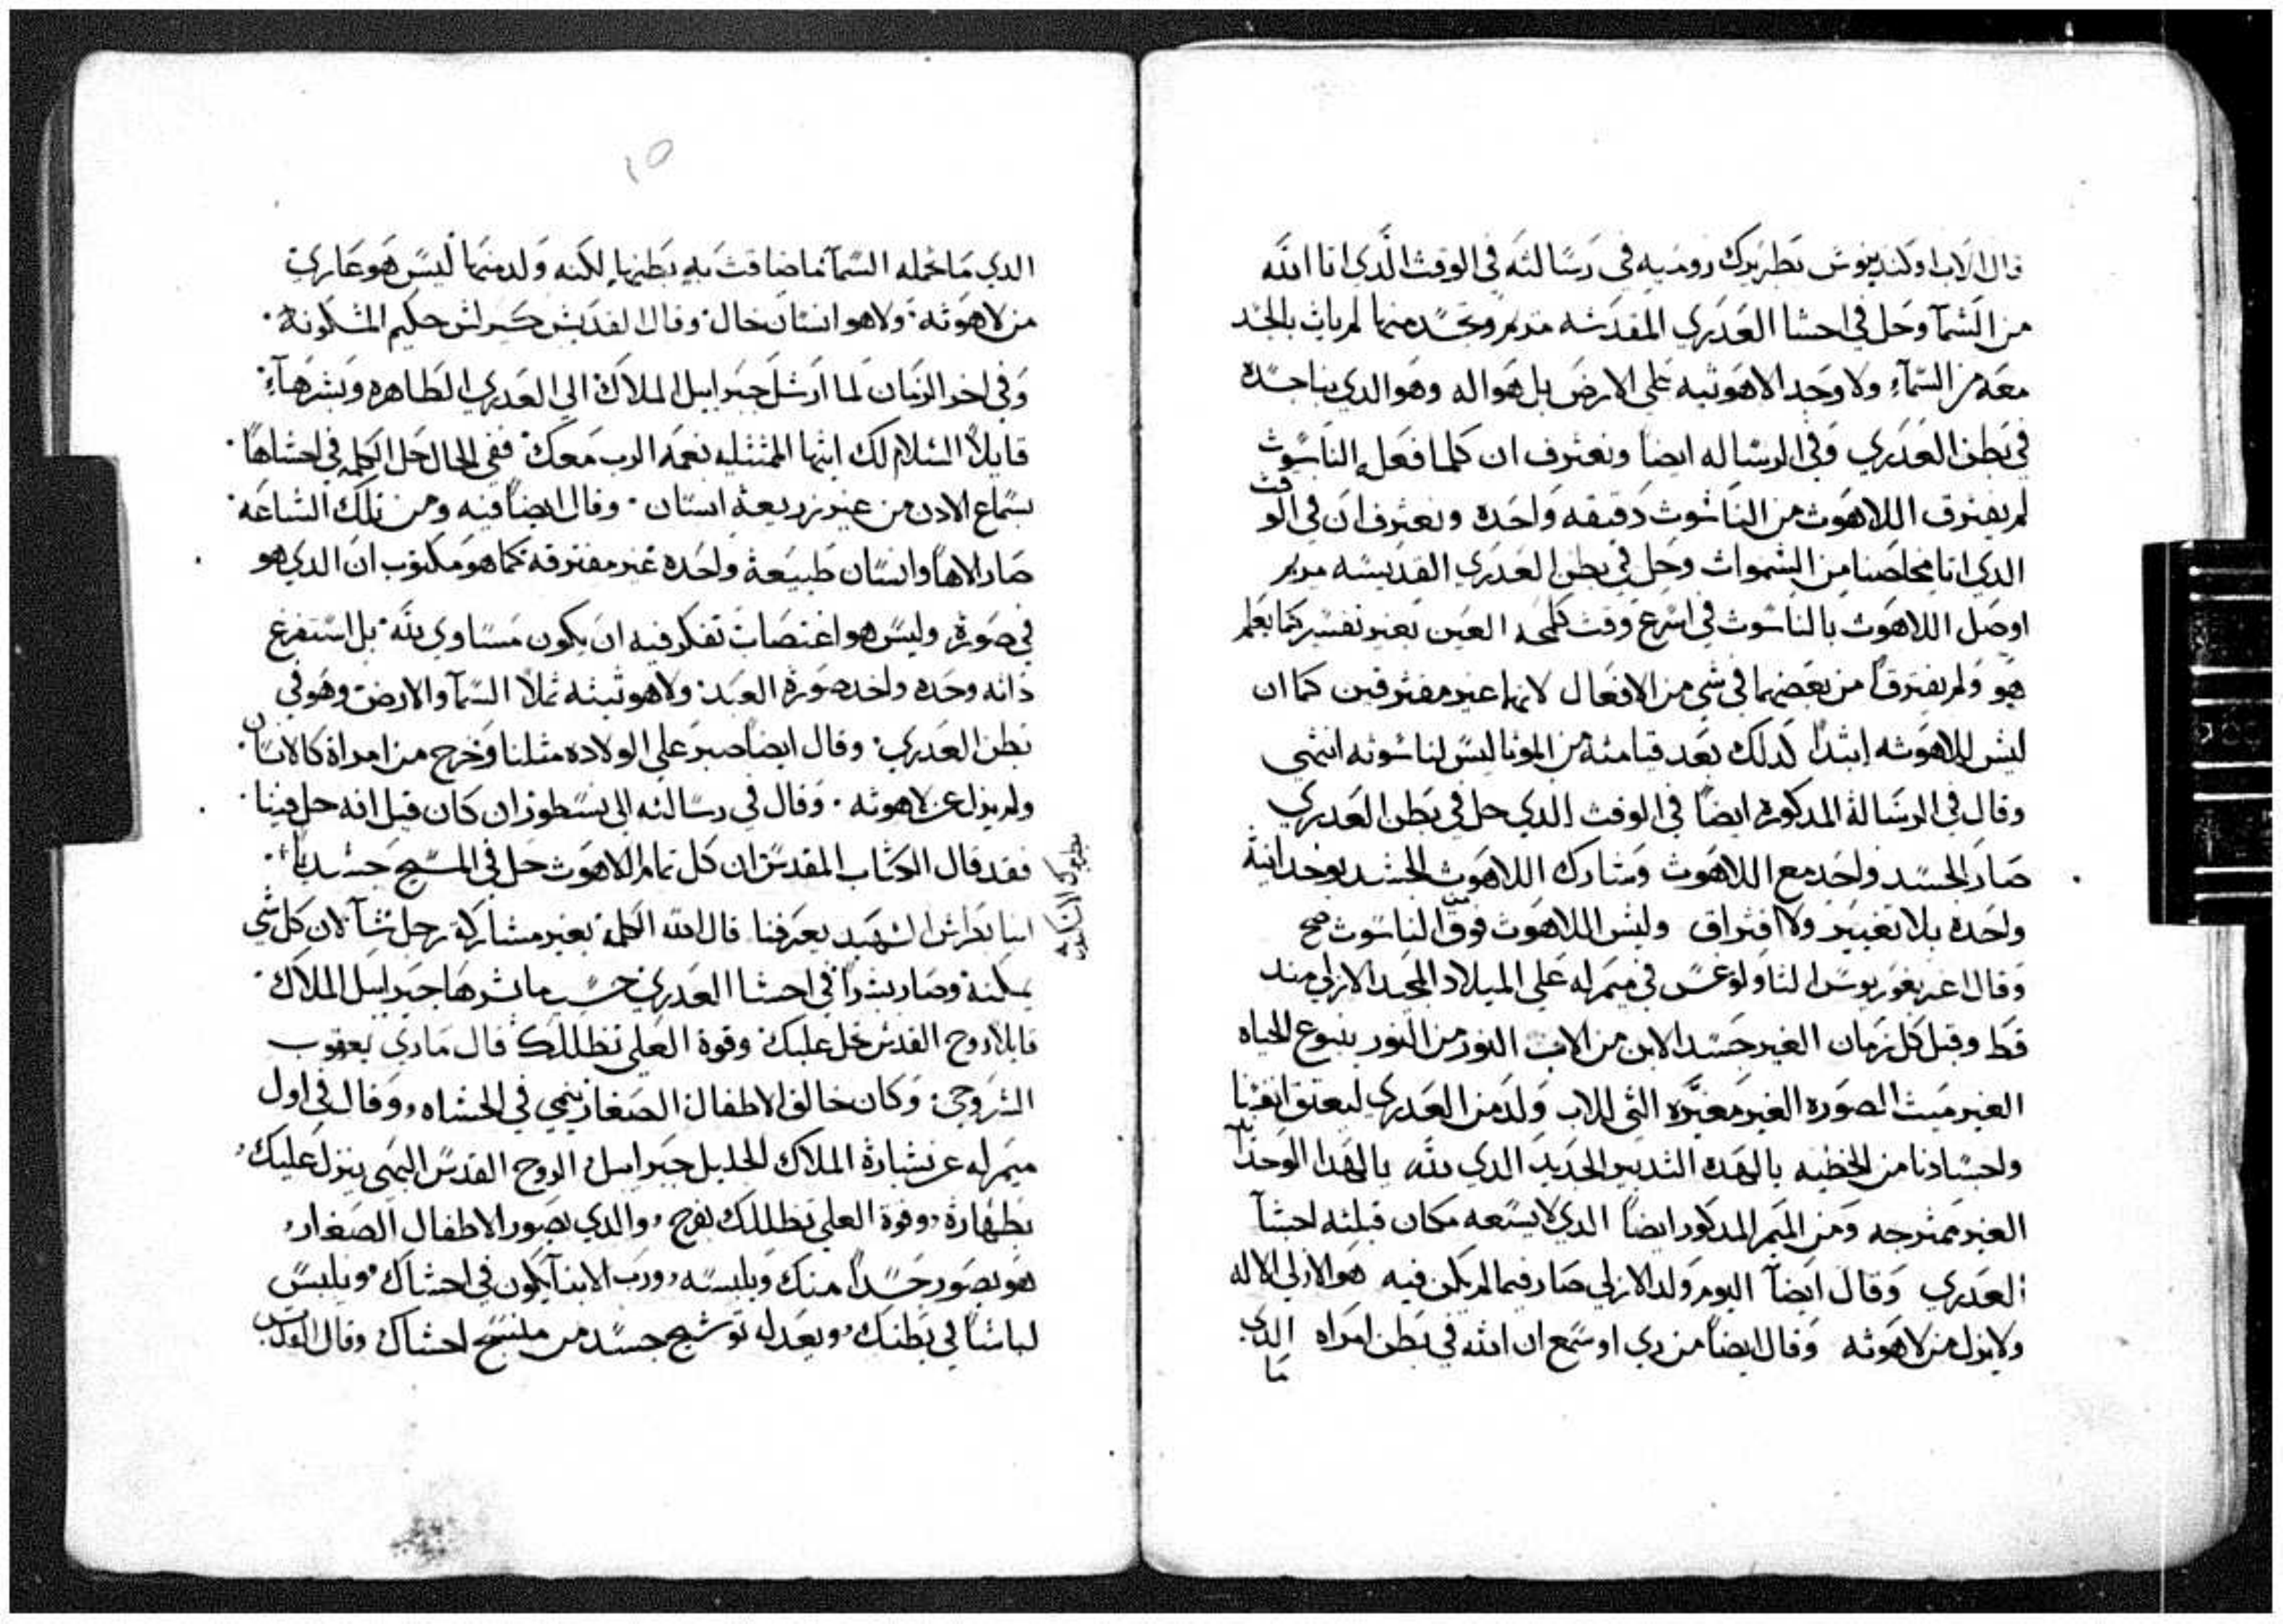 قال الاب اوكنديوش بطريرك رومية في رسالته في الوقت الذي اتا الله
من السما وحل في احشا العدري المقدسه مريم وتجسد منها لم يات بالجسد
معه من السماء ولا وجد الاهوتيه علي الارض بل هو اله وهو الدي بنا جسده
في بطن العدري وفي الرساله ايضا ونعترف ان كلما فعله الناسوت
لم يفترق اللاهوت من الناسوت دقيقه واحده ونعترف ان في الوقت
الدي اتا مخلصنا من السموات وحل في بطن العدري القديسه مريم
اوصل اللاهوت بالناسوت في اسرع وقت كلمحه العين بغير تفسير كما يعلم
هو ولم يفترقا من بعضهما في شي من الافعال لانهما غير مفترقين كما ان
ليس للاهوته ابتدا كدلك بعد قيامته من الموتا ليس لناسوته انتهي
وقال في الرسالة المدكوره ايضا في الوقت الدي حل في بطن العدري
صار الجسد واحد مع اللاهوت وشارك اللاهوت الجسد بوحدانية
واحده بلا تغيير ولا افتراق وليس اللاهوت فوق الناسوت صح
وقال اغريغوريوس التاولوغس في ميمر له علي الميلاد المجيد الازلي مند
قط وقبل كل زمان الغير جسد الابن من الاب النور من النور ينبوع الحياه
الغير ميت الصوره الغير مغيره التي للاب ولد من العدري ليعتق انفسنا
واجسادنا من الخطيه بالهده التدبير الجديد الدي لله بالهدا الوحدانية
الغير ممترجه ومن الميمر المدكور ايضا الدي لا يسعه مكان قبلته احشا
العدري وقال ايضا اليوم ولد الازلي صار فيما لم يكن فيه هو الازلي الاله
ولا يزل من لاهوته وقال ايضا من رى او سمع ان الله في بطن امراه الدي
ما
١٥
الدي ما تحمله السما ما ضاقت به بطنها لكنه ولد منها ليس هو عاري
من لاهوته ولا هو انسان خال وقال القديس كيرلس حكيم المسكونة
وفي اخر الزمان لما ارسل جبراييل الملاك الي العدري الطاهره وبشرها
قايلا السلام لك ايتها الممتليه نعمه الرب معك ففي الحال حل الكلمه في احشاها
بسماع الادن من غير زريعة انسان وقال ايضا فيه ومن تلك الساعه
صار الاها وانسان طبيعة واحده غير مفترقة كما هو مكتوب ان الدي هو
في صورة وليس هو اغتصاب تفكر فيه ان يكون مساوي لله بل استفرغ
داته وحده واخد صورة العبد ولاهوتيته تملا السما والارض وهو في
بطن العدري وقال ايضا صبر علي الولاده مثلنا وخرج من امراة كالانسان
ولم يزل عن لاهوته وقال في رسالته الي نسطور ان كان قيل انه حل فينا
فقد قال الكتاب المقدس ان كل تمام الاهوت حل في المسيح جسديا
ابنا بطرس الشهيد يعرفنا قال الله الكلمة بغير مشاركة رجل شا لان كل شي
يمكنه وصار بشرا في احشا العدري حسب ما بشرها جبراييل الملاك
قايلا روح القدس تحل عليك وقوة العلي تظللك قال ماري يعقوب
السروجي وكان خالق الاطفال الصغار ينمي في الحشاه وقال في اول
ميمر له عن بشارة الملاك الجليل جبراييل الروح القدس البهي ينزل عليك
بطهارة وقوة العلي تظللك بفرح والدي يصور الاطفال الصغار
هو يصور جسدا منك ويلبسه ورب الابنا يكون في احشاك ويلبس
لباسا في بطنك ويعدله توشيح جسد من منسج احشاك وقال القديس